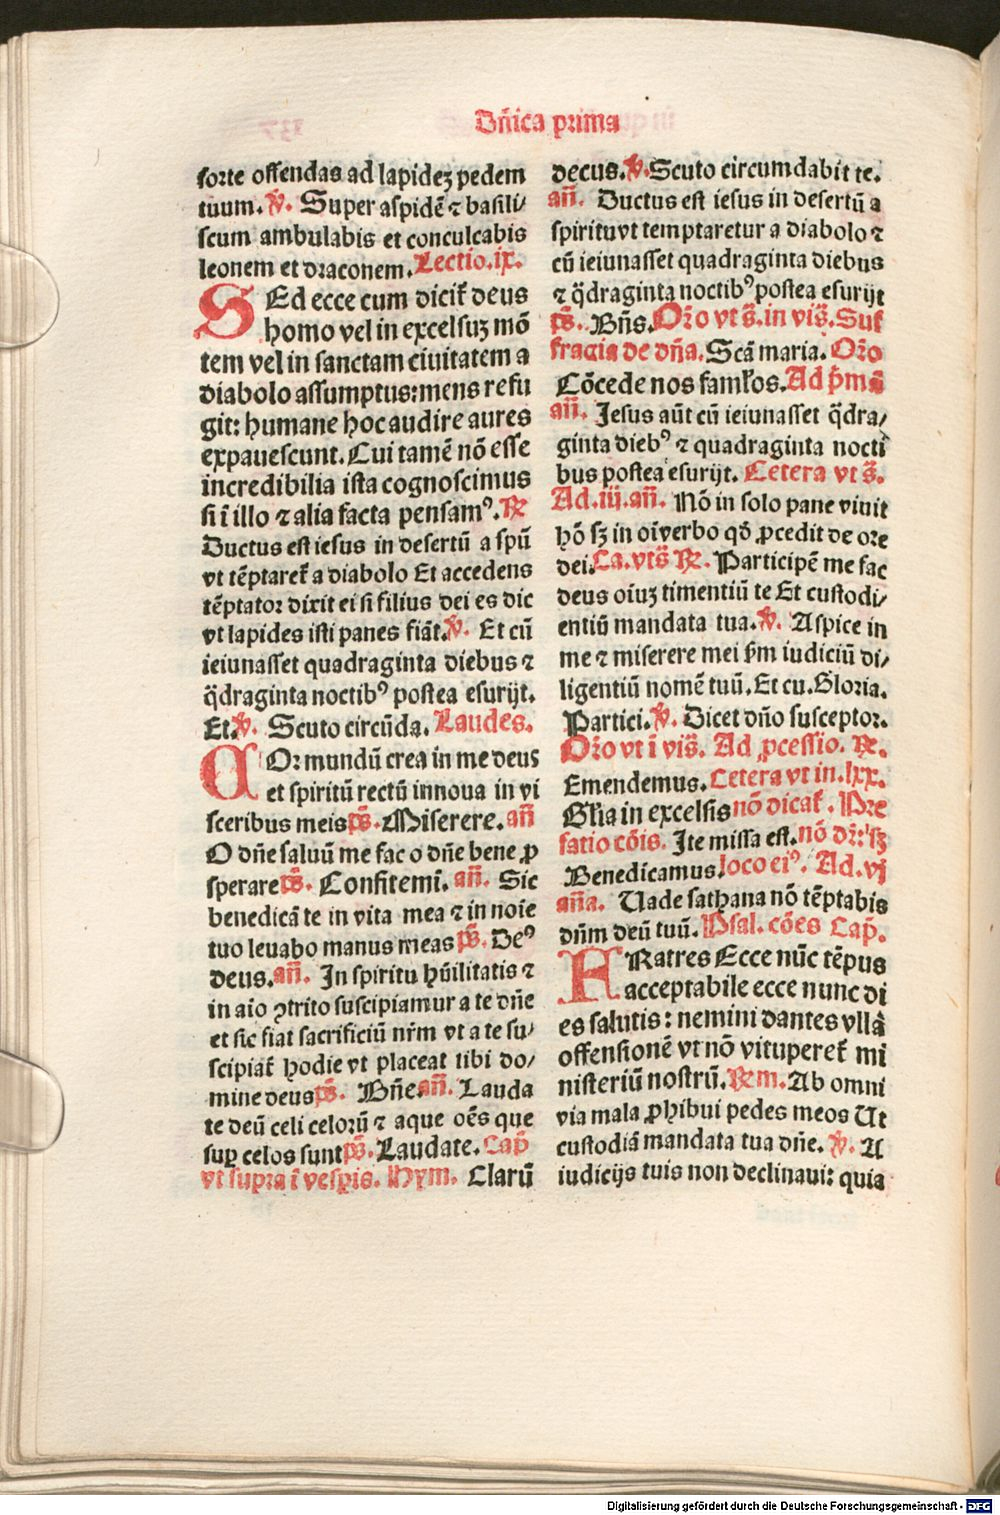 Dñica prima
sorte offendas ad lapideꝫ pedem
tuum. ℣. Super aspidẽ ⁊ basili/
scum ambulabis et conculcabis
leonem et draconem. Lectio. ix.
SEd ecce cum dicit᷑ deus
homo vel in excelsuꝫ mõ
tem vel in sanctam ciuitatem a
diabolo assumptus: mens refu
git: humane hoc audire aures
expauescunt. Cui tamẽ nõ esse
incredibilia ista cognoscimus
si ĩ illo ⁊ alia facta pensamꝰ. ℞
Ductus est iesus in desertũ a spũ
vt tẽptaret᷑ a diabolo Et accedens
tẽptator dixit ei si filius dei es dic
vt lapides isti panes fiãt. ℣. Et cũ
ieiunasset quadraginta diebus ⁊
q̃draginta noctibꝰ postea esurijt.
Et. ℣. Scuto circũda. Laudes.
COr mundũ crea in me deus
et spiritũ rectũ innoua in vi
sceribus meis p̃s. Miserere. añ
O dñe saluũ me fac o dñe bene ꝓ
sperare p̃s. Confitemĩ. añ. Sic
benedicã te in vita mea ⁊ in noĩe
tuo leuabo manus meas p̃s. Deꝰ
deus. añ. In spiritu hũilitatis ⁊
in aĩo ꝯtrito suscipiamur a te dñe
et sic fiat sacrificiũ nr̃m vt a te su/
scipiat᷑ hodie vt placeat tibi do/
mine deus p̃s. Bñe. añ. Lauda
te deũ celi celorũ ⁊ aque oẽs que
suꝑ celos sunt p̃s. Laudate. Cap̃
vt supra ĩ vespis. Hym. Clarũ
decus. ℣. Scuto circumdabit te.
añ. Ductus est iesus in desertũ a
spiritu vt temptaretur a diabolo ⁊
cũ ieiunasset quadraginta diebus
⁊ q̃draginta noctibꝰ postea esurijt
p̃s. Bñs. Or̃o vt s̃. in vis̃. Suf
fragia de dña. Scã maria. Or̃o
Cõcede nos famlos. Ad p̃mã
añ. Jesus aũt cũ ieiunasset q̃dra/
ginta diebꝰ ⁊ quadraginta noctĩ
bus postea esurijt. Cetera vt s̃.
Ad. iij. añ. Nõ in solo pane viuit
hõ sꝫ in oĩ verbo qđ ꝓcedit de ore
dei. Ca. vt s̃ ℞. Participẽ me fac
deus oĩuꝫ timentiũ te Et custodi/
entiũ mandata tua. ℣. Aspice in
me ⁊ miserere mei ẜm iudiciũ di/
ligentiũ nomẽ tuũ. Et cu. Gloria.
Partici. ℣. Dicet dño susceptor.
Or̃o vt ĩ vis̃. Ad ꝓcessio. ℞.
Emendemus. Cetera vt in. lxx.
Glia in excelsis nõ dicat᷑. Pre
fatio cõis. Ite missa est. nõ dr̃: sꝫ
Benedicamus. loco eiꝰ. Ad. vj
aña. Uade sathana nõ tẽptabis
dñm deũ tuũ. Psal. cões Cap̃.
FRatres Ecce nũc tẽpus
acceptabile ecce nunc di
es salutis: nemini dantes vllã
offensionẽ vt nõ vituperet᷑ mi
nisteriũ nostrũ. ℞m. Ab omni
via mala ꝓhibui pedes meos Ut
custodiã mandata tua dñe. ℣. A
iudicijs tuis non declinaui: quia
Digitalisierung gefördert durch die Deutsche Forschungsgemeinschaft - DFG